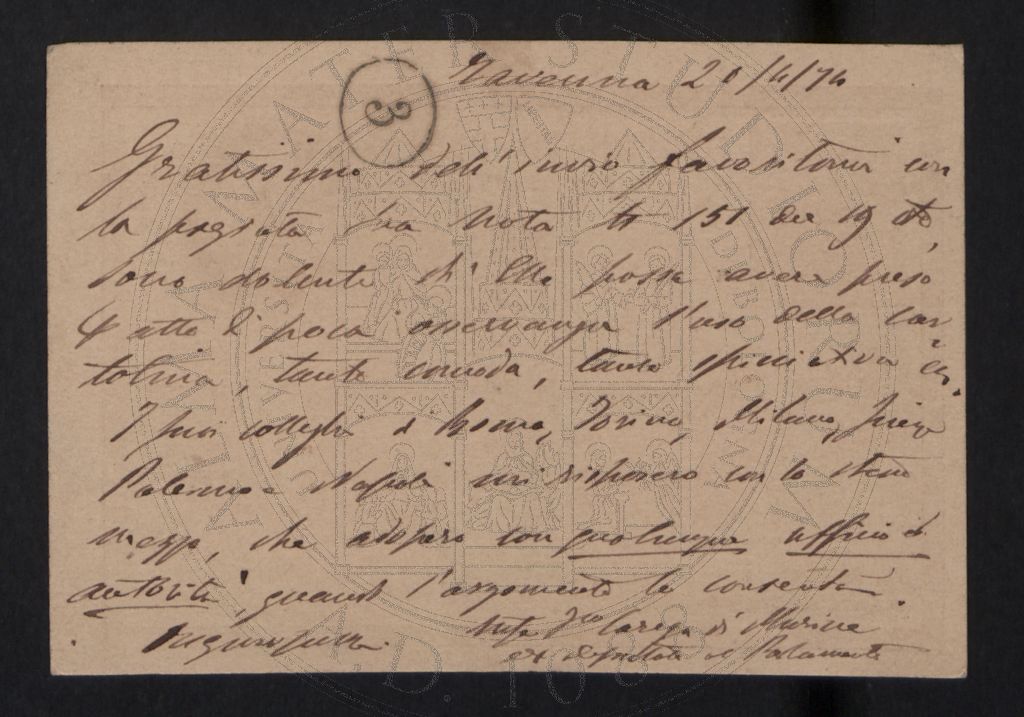 3
Ravenna 20/4/74
Gratissimo dell' invio favoritomi con
la pregiata sua nota N 151 del 19 and,
sono dolente ch' Ella possa avere preso
l'atto di poca osservanza l'uso della car
tolina, tanto comoda, tanto
I suoi colleghi di Roma, Torino, Milano, Firenze
Palermo e Napoli mi risposero con lo stesso
mezzo, che adopero con qualunque ufficio od
autorità, quando l'argomento lo consenta
Carega di Muricce
ex deputato al Parlamento